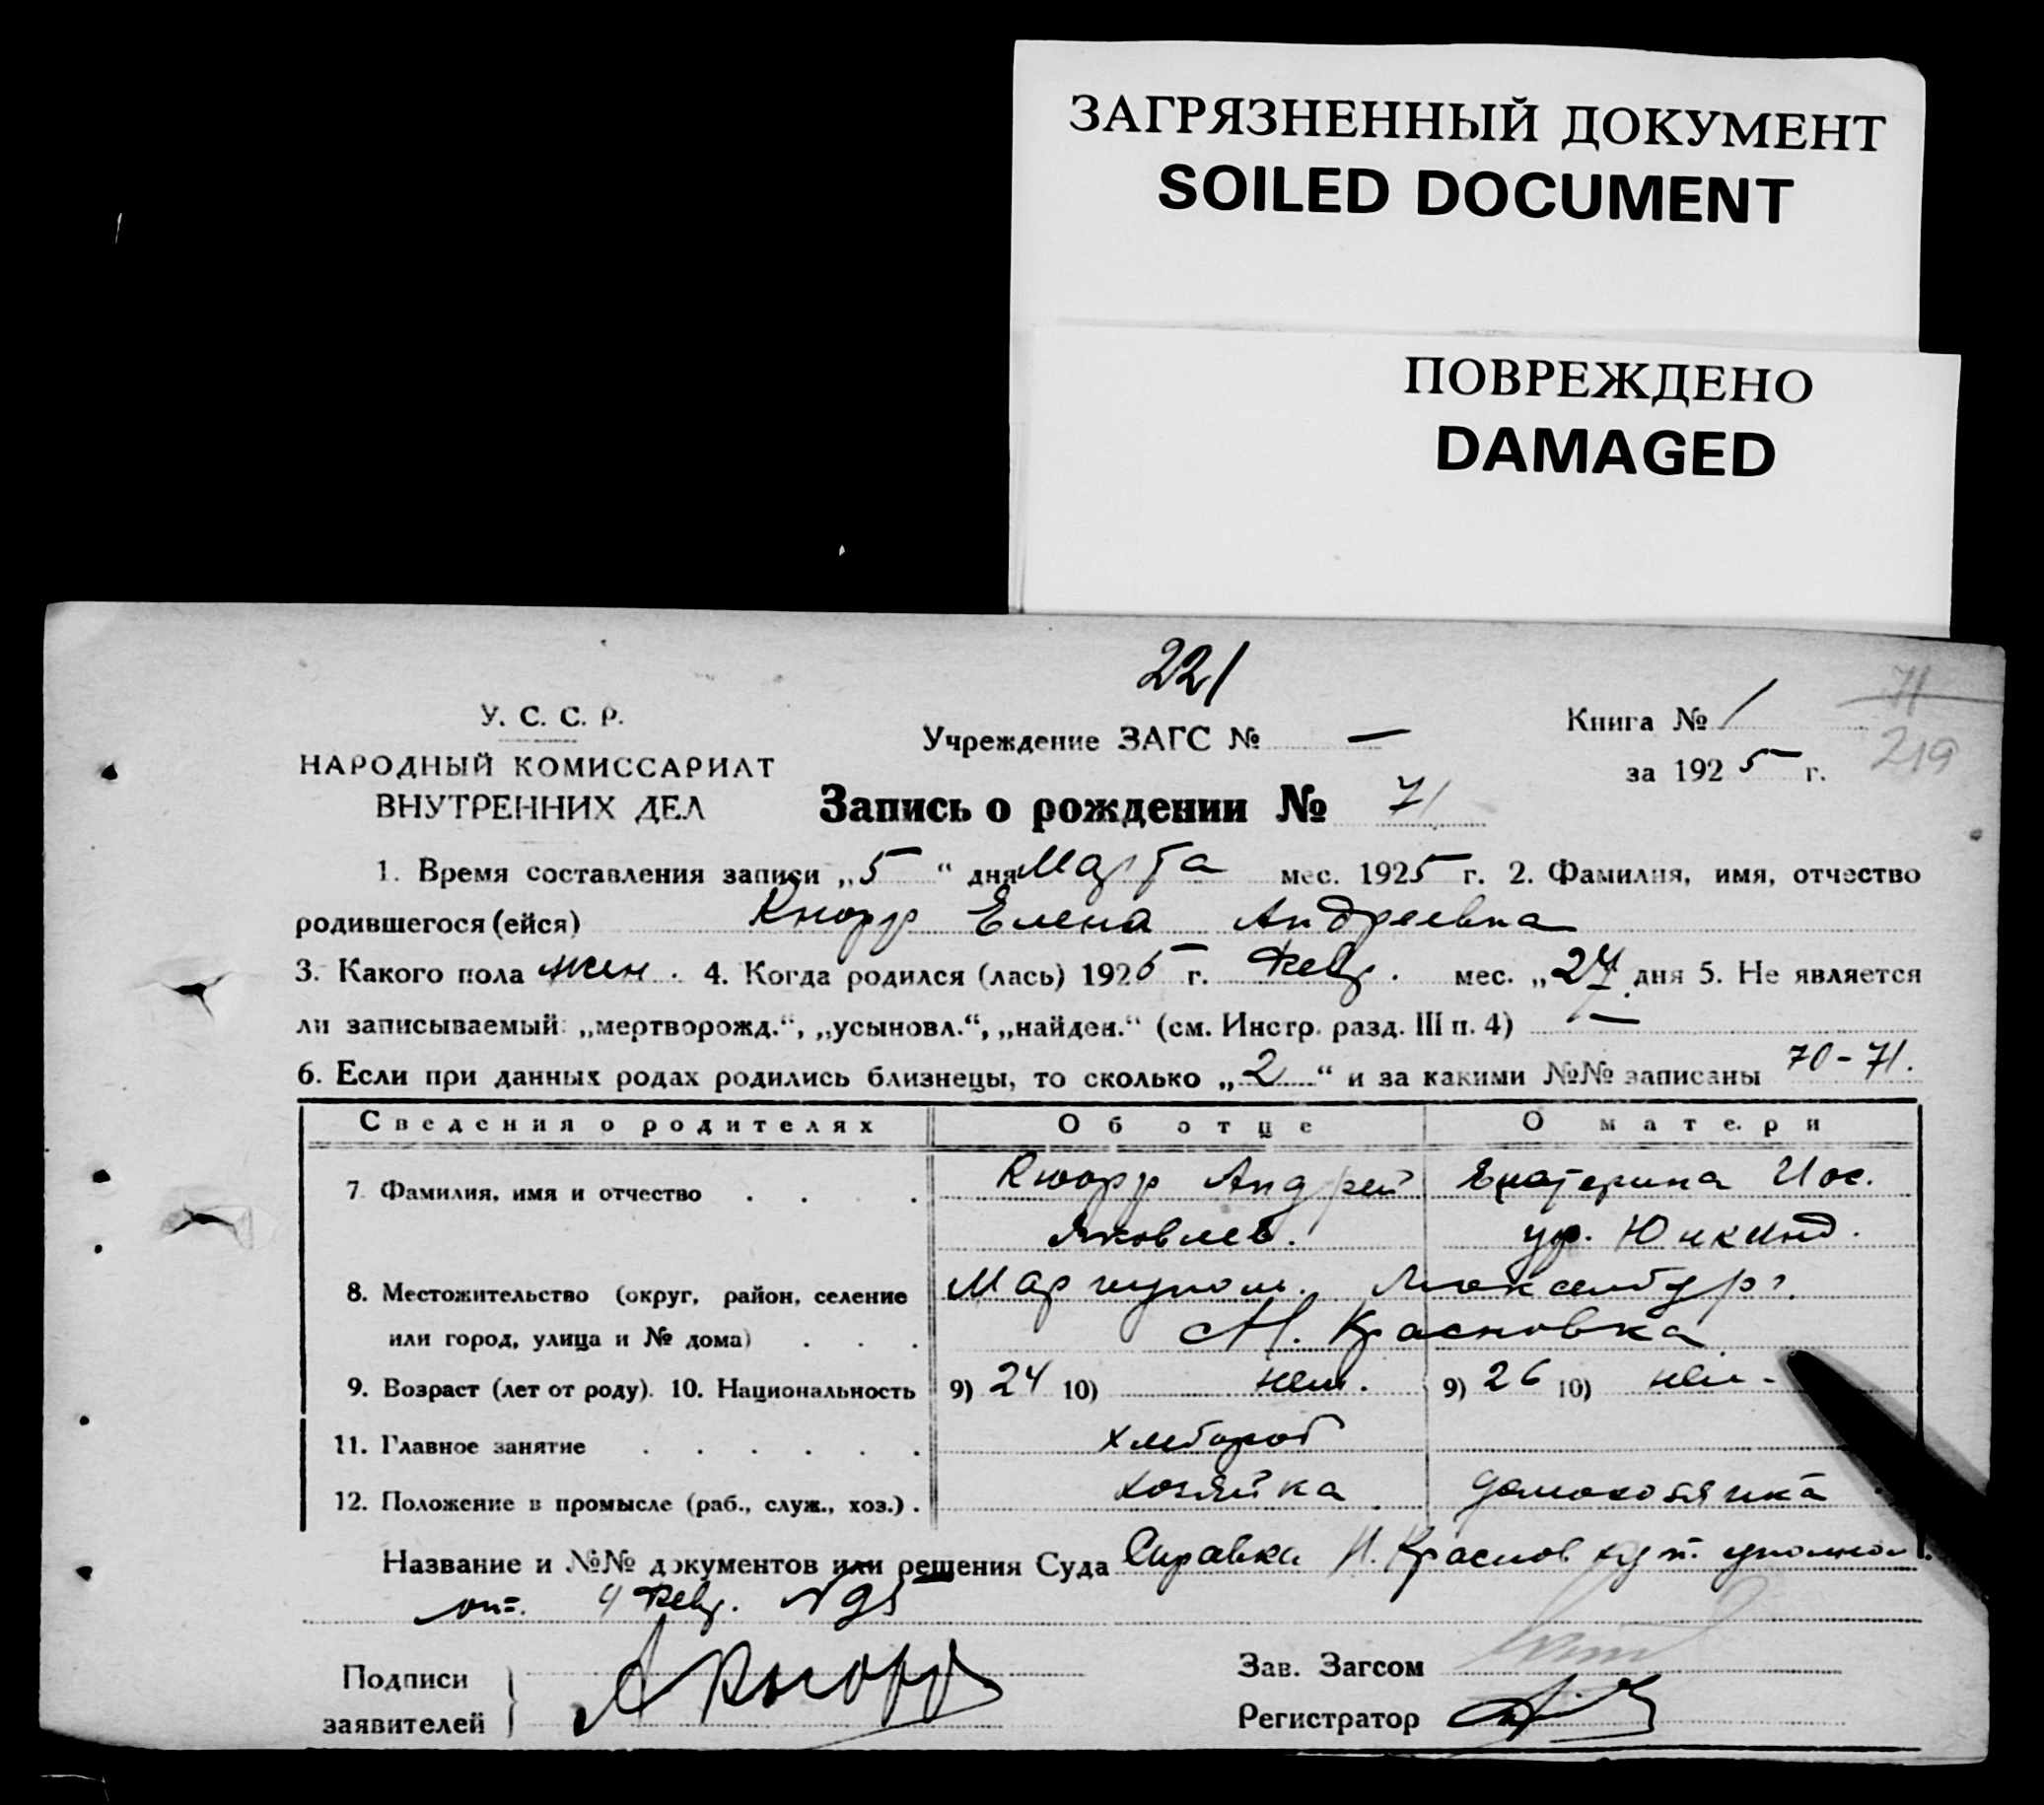 ЗАГРЯЗНЕННЫЙ ДОКУМЕНТ
SOILED DOCUMENT
ПОВРЕЖДЕНО
DAMAGED
221
71
219
У. С. С. Р.
НАРОДНЫЙ КОМИССАРИАТ
ВНУТРЕННИХ ДЕЛ
Учреждение ЗАГС № —
Книга № 1
за 1925 г.
Запись о рождении № 71
1. Время составления записи „5“ дня Марта мес. 1925 г. 2. Фамилия, имя, отчество
родившегося (ейся) Кнорр Елена Андреевна
3. Какого пола жен. 4. Когда родился (лась) 1925 г. Февр. мес. „24 дня 5. Не является
ли записываемый: „мертворожд.“, „усыновл.“, „найден.“ (см. Инстр. разд. III п. 4) —
6. Если при данных родах родились близнецы, то сколько „2“ и за какими №№ записаны 70-71.
Сведения о родителях Об отце О матери
7. Фамилия, имя и отчество Кнорр Андрей Екатерина Иос.
Яковлев. ур. Юнкинд.
8. Местожительство (округ, район, селение Мариупол. Люксембург.
или город, улица и № дома) Н. Красновка
9. Возраст (лет от роду). 10. Национальность 9) 24 10) нем. 9) 26 10) нем.
11. Главное занятие хлебороб
12. Положение в промысле (раб., служ., хоз.) хозяйка домохозяйка
Название и №№ документов или решения Суда Справка Н. Краснов уполном.
от. 4 Февр. №95
Подписи
заявителей А Кнорр
Зав. Загсом
Регистратор